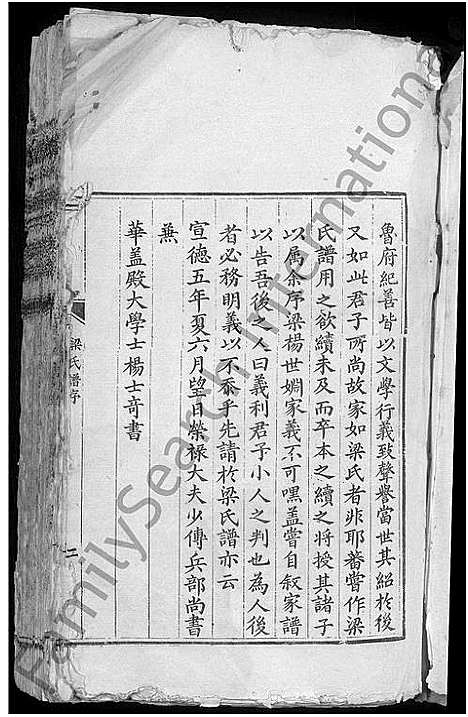 魯府紀善皆以文學行義致聲譽當世其紹於後
又如此君子所尚故家如梁氏者非耶蕃嘗作梁
氏譜用之欲續未及而卒本之續之將授其諸子
以属余序梁楊世婣家義不可嘿盖嘗自叙家譜
以告吾後之人曰義利君子小人之判也為人後
者必務明義以不忝乎先請於梁氏譜亦云
宣德五年夏六月望日榮祿大夫少傅兵部尚書
兼
華盖殿大學士楊士奇書
梁氏譜序
二
FamilySearch International